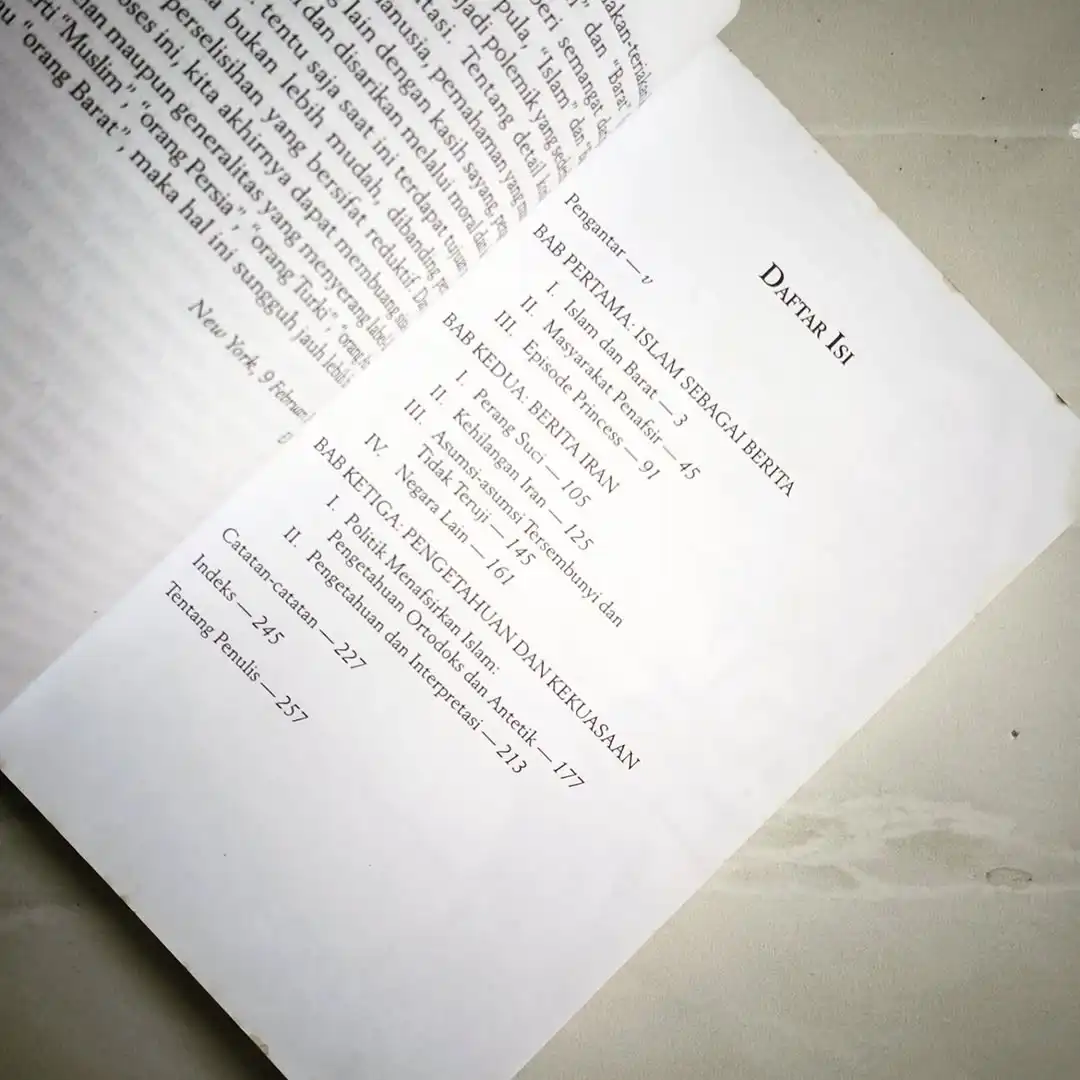 akan-teriakan
" dan "Barat
beri semangat da
pula, "Islam" dan
jadi polemik yang
tasi. Tentang detail
anusia, pemahaman yang
g lain dengan kasih sayang,
dan disarikan melalui moral dan
tentu saja saat ini terdapat tujuan
a bukan lebih mudah, dibanding
perselisihan yang bersifat reduktif.
oses ini, kita akhirnya dapat membuang
cian maupun generalitas yang menyerang label
erti "Muslim", "orang Persia", "orang Turki", "orang
"orang Barat", maka hal ini sungguh jauh lebih
New York, 9 Februari
DAFTAR ISI
Pengantar — v
BAB PERTAMA: ISLAM SEBAGAI BERITA
I. Islam dan Barat — 3
II. Masyarakat Penafsir — 45
III. Episode Princess — 91
BAB KEDUA: BERITA IRAN
I. Perang Suci — 105
II. Kehilangan Iran — 125
III. Asumsi-asumsi Tersembunyi dan
Tidak Teruji — 145
IV. Negara Lain — 161
BAB KETIGA: PENGETAHUAN DAN KEKUASAAN
I. Politik Menafsirkan Islam:
Pengetahuan Ortodoks dan Antetik — 177
II. Pengetahuan dan Interpretasi — 213
Catatan-catatan — 227
Indeks — 245
Tentang Penulis — 257